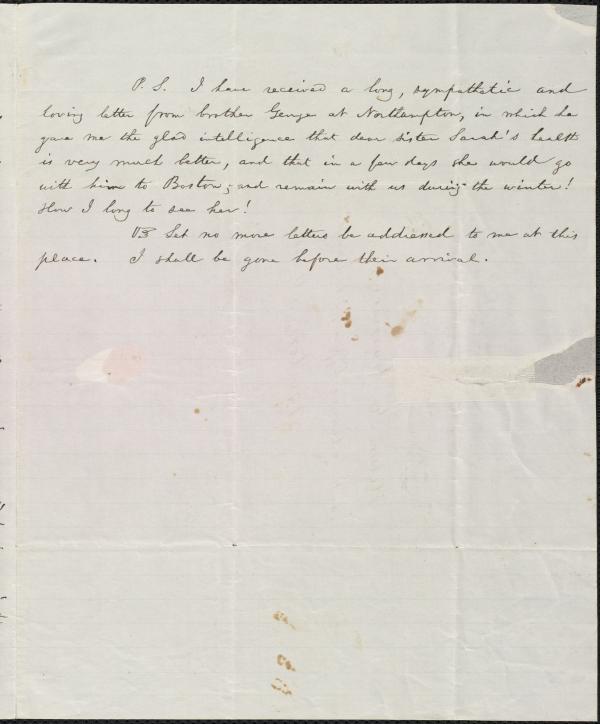 P. S. I have received a long, sympathetic and
loving letter from brother George at Northampton, in which he
gave me the glad intelligence that dear sister Sarah's health
is very much better, and that in a few days she would go
with him to Boston, and remain with us during the winter!
How I long to see her!
☞ Let no more letters be addressed to me at this
place. I shall be gone before their arrival.